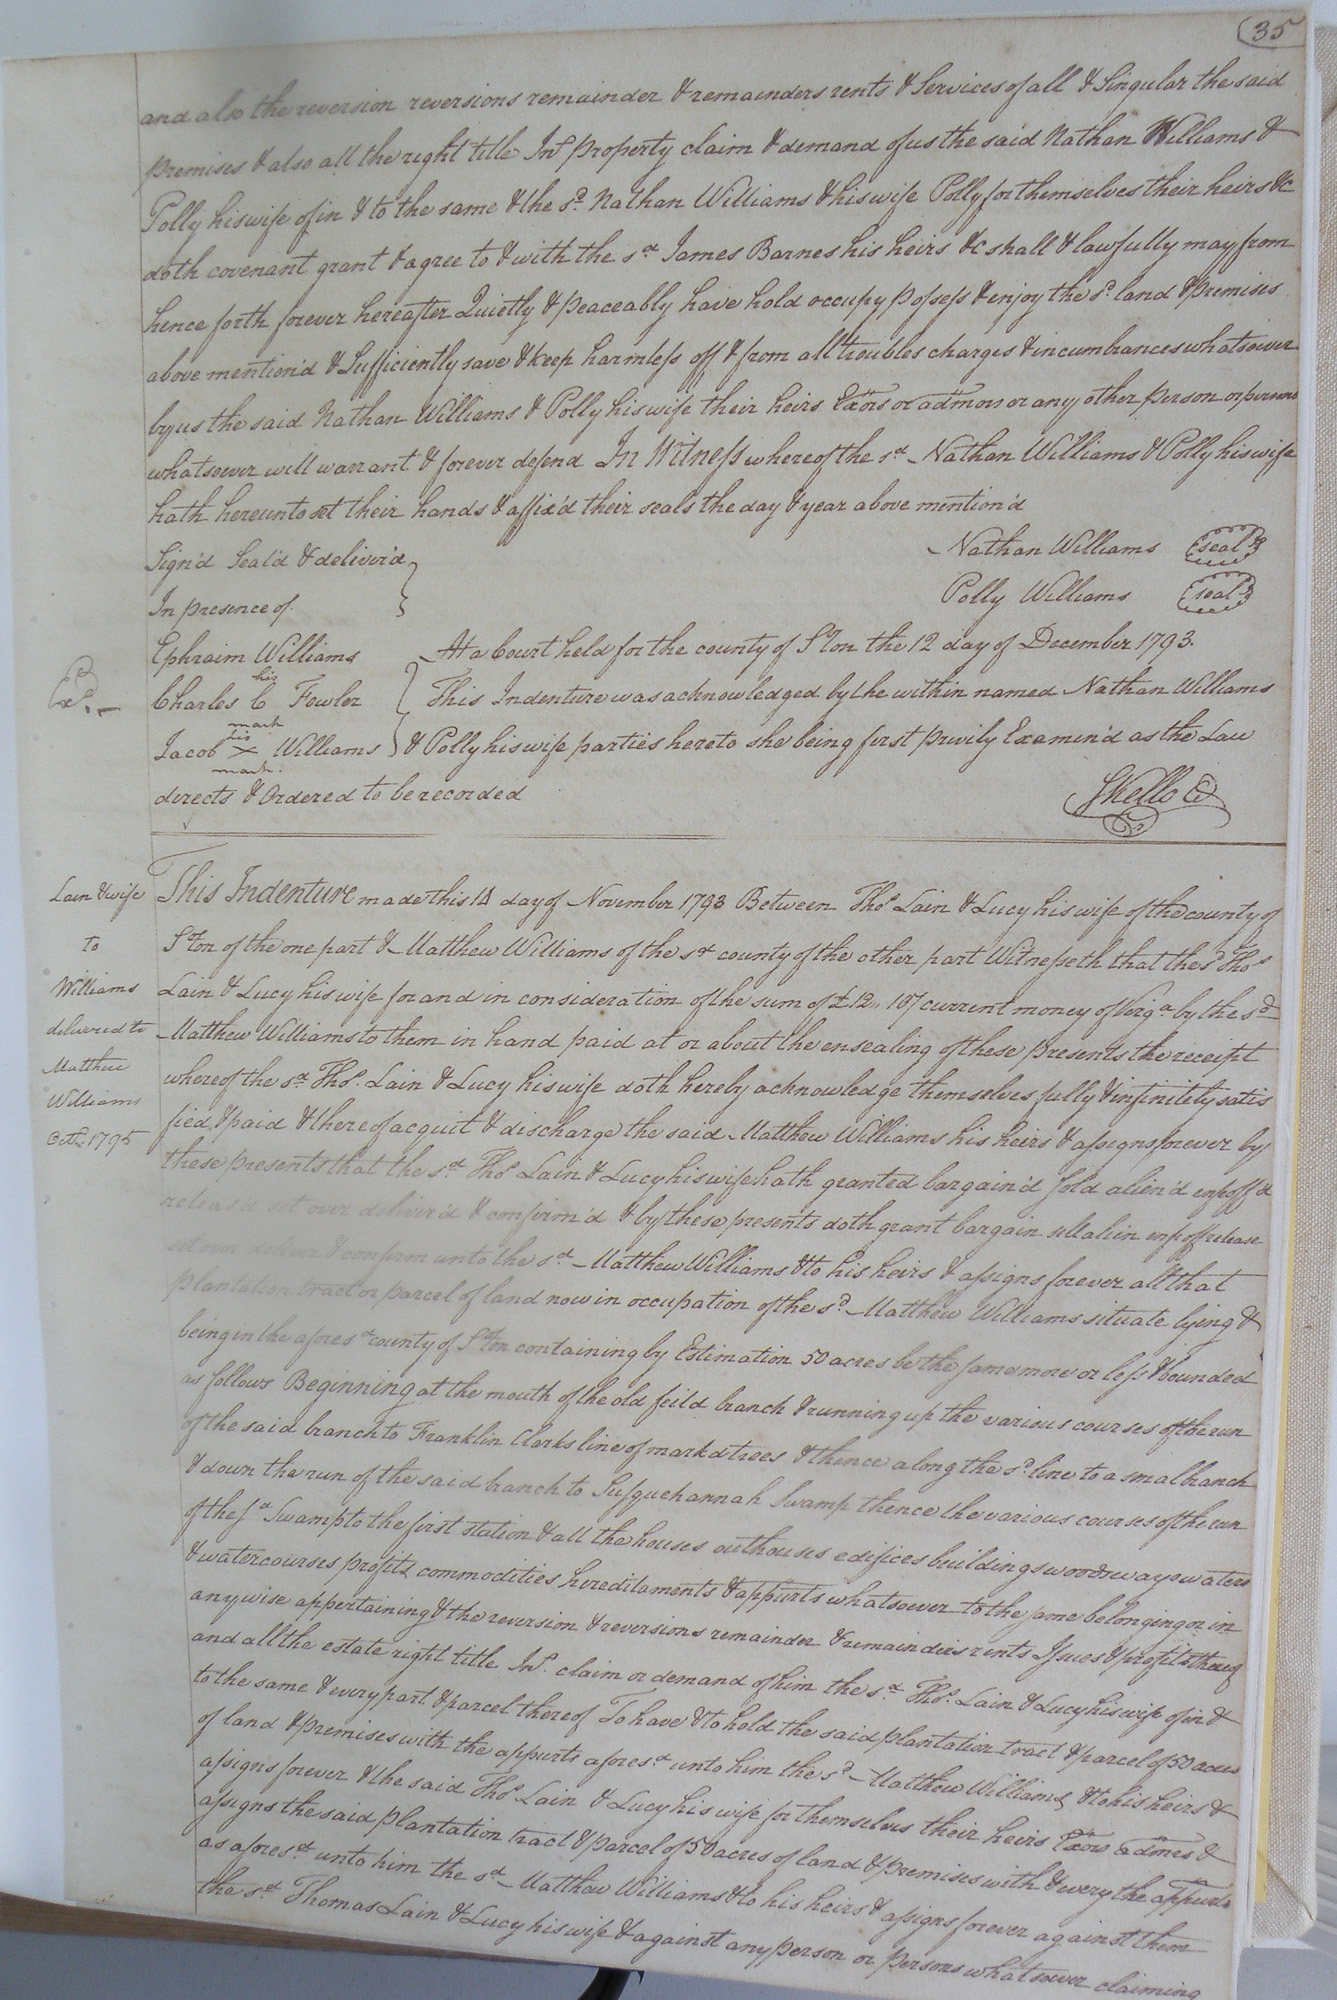 35
and also the reversion reversions remainder & remainders rents & Services of all & Singular the said
premises & also all the right title Int property claim & demand of us the said Nathan Williams &
Polly his wife of in & to the same & the sd. Nathan Williams & his wife Polly for themselves their heirs &c
doth covenant grant & agree to & with the sd James Barnes his heirs &c shall & lawfully may from
hence forth forever hereafter Quietly & peaceably have hold occupy possess & enjoy the sd. land & premises
above mention'd & Sufficiently save & keep harmless off & from all troubles charges & incumbrances whatsoever
by us the said Nathan Williams & Polly his wife their heirs Exors or admors or any other person or persons
whatsoever will warrant & forever defend In Witness whereof the sd Nathan Williams & Polly his wife
hath hereunto set their hands & affix'd their seals the day & year above mention'd
Sign'd Seal'd & deliver'd
In presence of
Nathan Williams seal
Polly Williams seal
Ephraim Williams
his
Charles C Fowler
mark
his
Jacob X Williams
mark.
Ex.
At a Court held for the county of Ston the 12 day of December 1793.
This Indenture was acknowledged by the within named Nathan Williams
& Polly his wife parties hereto she being first privily Examin'd as the Law
directs & Ordered to be recorded
SKello C
Lain & wife
to
Williams
delivered to
Matthew
Williams
Octr. 1795
This Indenture made this 14 day of November 1793 Between Thos Lain & Lucy his wife of the county of
Ston of the one part & Matthew Williams of the sd county of the other part Witnesseth that the sd Thos
Lain & Lucy his wife for and in consideration of the sum of £12,, 10/ current money of Virga by the sd
Matthew Williams to them in hand paid at or about the ensealing of these presents the receipt
whereof the sd Thos. Lain & Lucy his wife doth hereby acknowledge themselves fully & infinitely satis
fied & paid & thereof acquit & discharge the said Matthew Williams his heirs & assigns forever by
these presents that the sd Thos Lain & Lucy his wife hath granted bargain'd sold alien'd enfeoff'd
releas'd set over deliver'd & confirm'd & by these presents doth grant bargain sell alien enfeoff release
set over deliver & confirm unto the sd Matthew Williams & to his heirs & assigns forever all that
plantation tract or parcel of land now in occupation of the sd. Matthew Williams situate lying &
being in the aforesd county of Ston containing by Estimation 50 acres be the same more or less & bounded
as follows Beginning at the mouth of the old feild branch & running up the various courses of the run
of the said branch to Franklin Clarks line of markd trees & thence along the sd. line to a small branch
& down the run of the said branch to Susquehannah Swamp thence the various courses of the run
of the sd Swamp to the first station & all the houses outhouses edifices buildings woods ways waters
& watercourses profits commodities hereditaments & appurts whatsoever to the same belonging or in
anywise appertaining & the reversion & reversions remainder & remainders rents Issues & profits thereof
and all the estate right title Int. claim or demand of him the sd. Thos. Lain & Lucy his wife of in &
to the same & every part & parcel thereof To have & to hold the said plantation tract & parcel of 50 acres
of land & premises with the appurts aforesd unto him the sd. Matthew Williams & to his heirs &
assigns forever & the said Thos Lain & Lucy his wife for themselves their heirs Exors admrs &
assigns the said plantation tract & parcel of 50 acres of land & premises with & every the appurts
as aforesd unto him the sd Matthew Williams & to his heirs & assigns forever against them
the sd Thomas Lain & Lucy his wife & against any person or persons whatsoever claiming